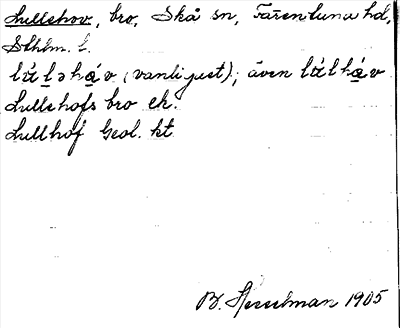 Lullehov, bro, Skå sn, Färentuna hd,
Sthlm. l.
lúləháv (vanligast); även lúlháv
Lullehofs bro ek.
Lullhof Geol. kt.
B. Hesselman 1905